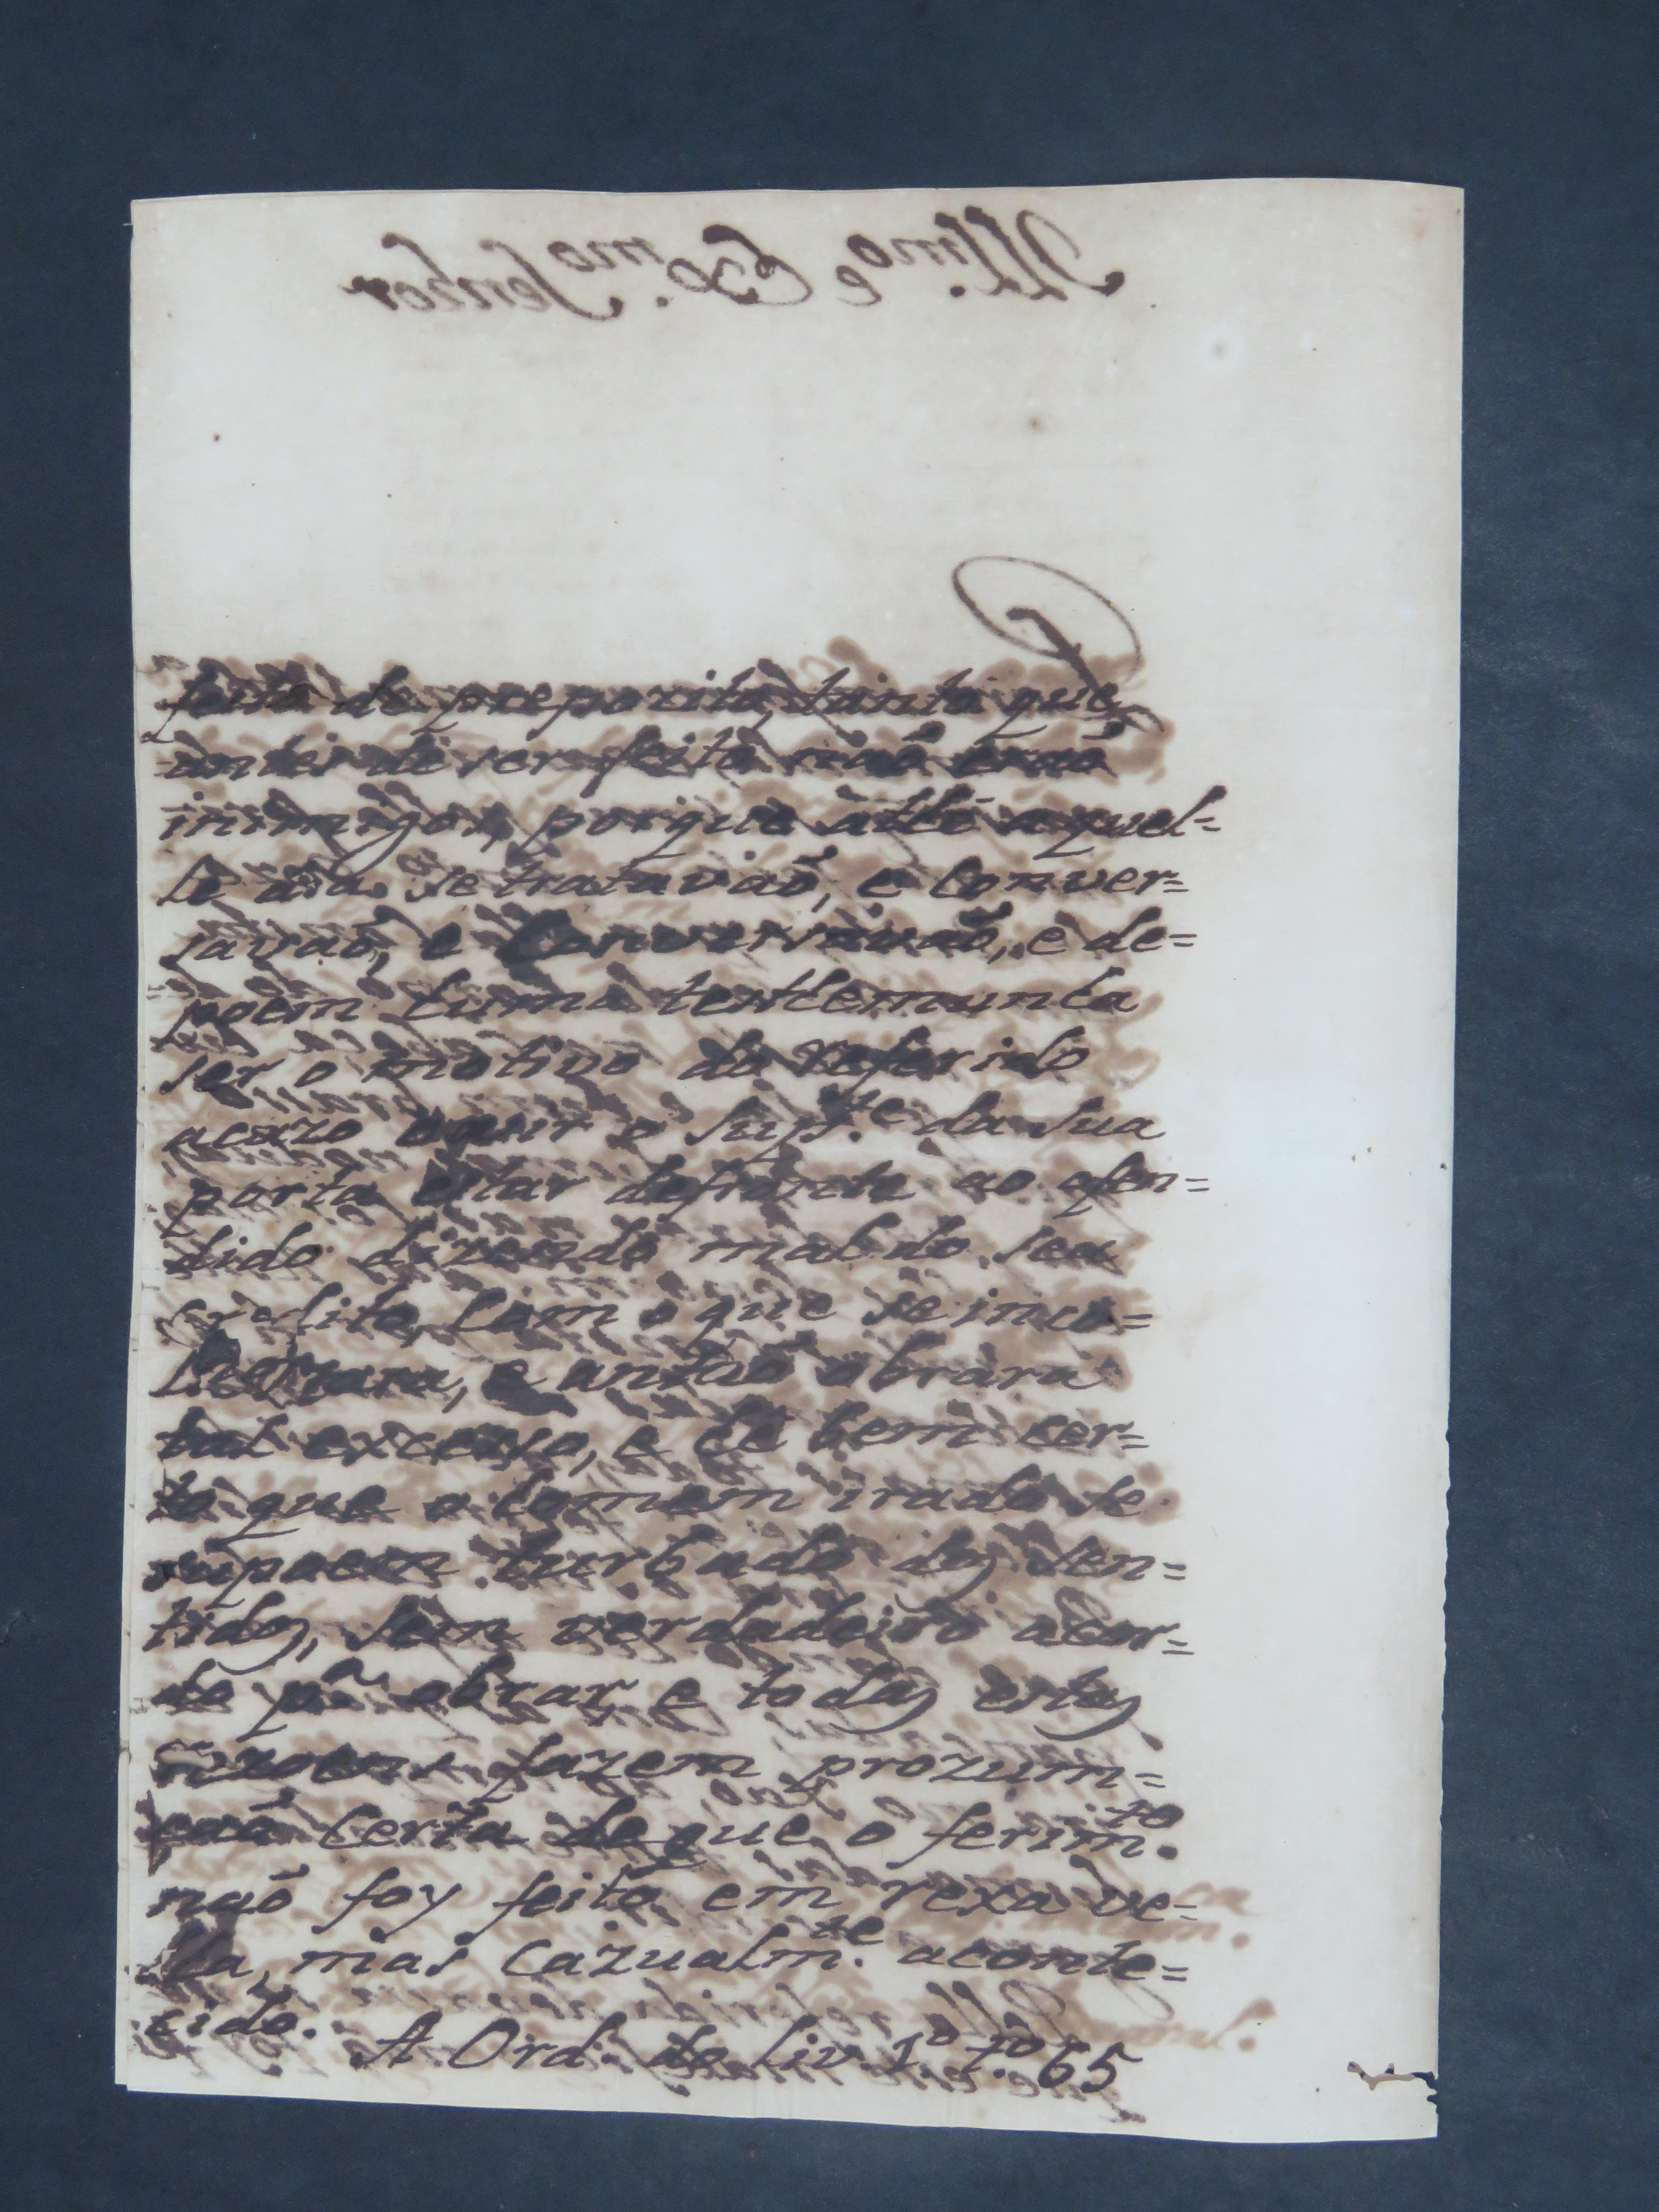 Ill.mo e Exo.mo Senhor
feito de preporito, tanto que
antes de ser feito não erão
inimigos, porque athé aquel=
le dia se tratavaõ, e conver=
savaõ, e conversavaõ, e de=
poem huma testhemunha
ser o motivo do referido
acazo ouvir o Sup.te da sua
porta estar defronte ao ofen=
dido dizendo mal do seu
credito, com o que se inco=
, e antaõ obrara
tal excesso, e hé bem cer=
to que o homem irado se
supoem turbado dos sen=
tidos, sem verdadeiro acor=
do p.a obrar, e todas estas
rezoens fazem prozum=
çaõ certa de que o ferim.to
naõ foy feito em rexa ve=
lha, mas cazualm.te aconte=
cido.
A Ord. do Liv. 1º tº 65